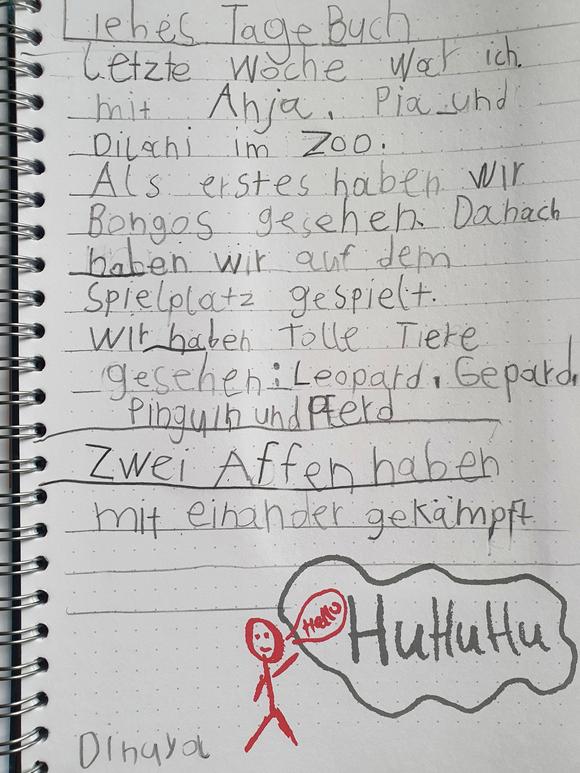 Liebes TageBuch
Letzte Woche war ich
mit Anja, Pia und
Dilani im Zoo.
Als erstes haben wir
Bongos gesehen. Danach
haben wir auf dem
Spielplatz gespielt.
Wir haben Tolle Tiere
gesehen: Leopard, Gepard,
Pinguin und Pferd
Zwei Affen haben
mit einander gekämpft
Hello
HuHuHu
Dinaya